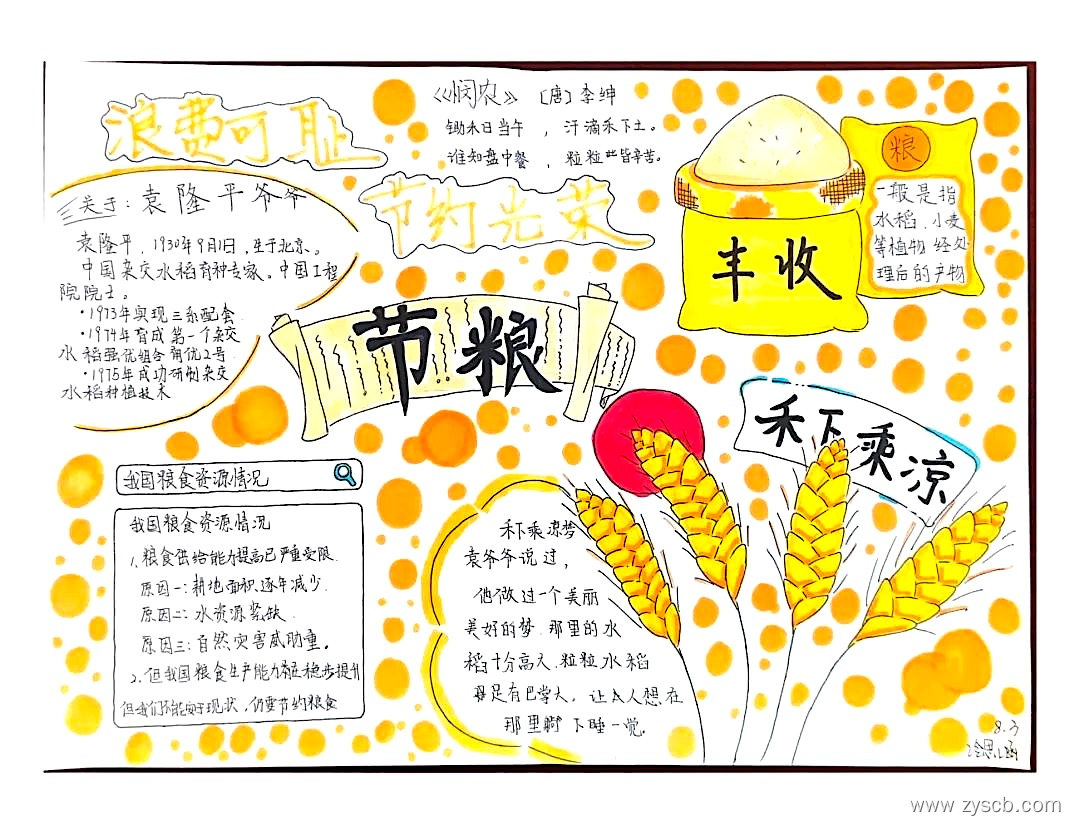 浪费可耻
《悯农》 [唐] 李绅
锄禾日当午 ，汗滴禾下土。
谁知盘中餐 ，粒粒些皆辛苦。
节约光荣
关于：袁隆平爷爷
袁隆平，1930年9月1日，生于北京。
中国杂交水稻育种专家。中国工程
院院士。
·1973年实现三系配套
·1974年育成第一个杂交
水稻强优组合南优2号
·1975年成功研制杂交
水稻种植技术
节粮
丰收
粮
一般是指
水稻、小麦
等植物经处
理后的产物
禾下乘凉
我国粮食资源情况
我国粮食资源情况
1、粮食供给能力提高已严重受限
原因一：耕地面积逐年减少.
原因二：水资源紧缺.
原因三：自然灾害威胁重。
2、但我国粮食生产能力稳步提升
但我们不能安于现状，仍要节约粮食
禾下乘凉梦
袁爷爷说过，
他做过一个美丽
美好的梦.那里的水
稻十分高大,粒粒水稻
有巴掌大，让人想在
那里脚下睡一觉.
8.3
www.zyscb.com